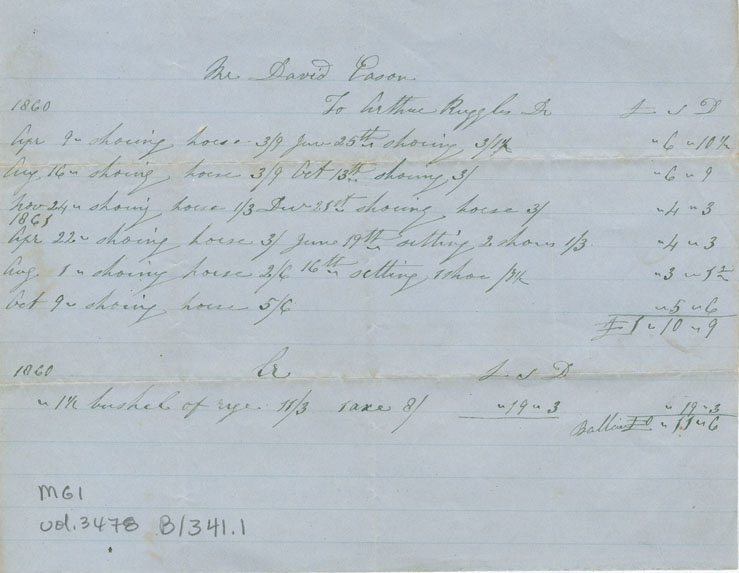 Mr David Eason
1860 To Arthur Ruggles Dr £ s D
Apr 9 " shoeing horse 3/9 June 25th shoing 3/1½ " 6 " 10½
Aug 16 " shoing horse 3/9 Oct 13th shoing 3/ " 6 " 9
Nov 24 " shoing horse 1/3 Dec 21st shoing horse 3/ " 4 " 3
1861
Apr 22 " shoing horse 3/ June 19th setting 2 shoes 1/3 " 4 " 3
Aug 1 " shoing horse 2/6 16th " setting 1 shoe /7½ " 3 " 1½
Oct 9 " shoing horse 5/6 " 5 " 6
£1 " 10 " 9
1860 Cr £ s D
" 1½ bushel of rye 11/3 1 axe 8/ " 19 " 3 " 19 " 3
£0 " 11 " 6
MG1
vol.3478 B/341.1